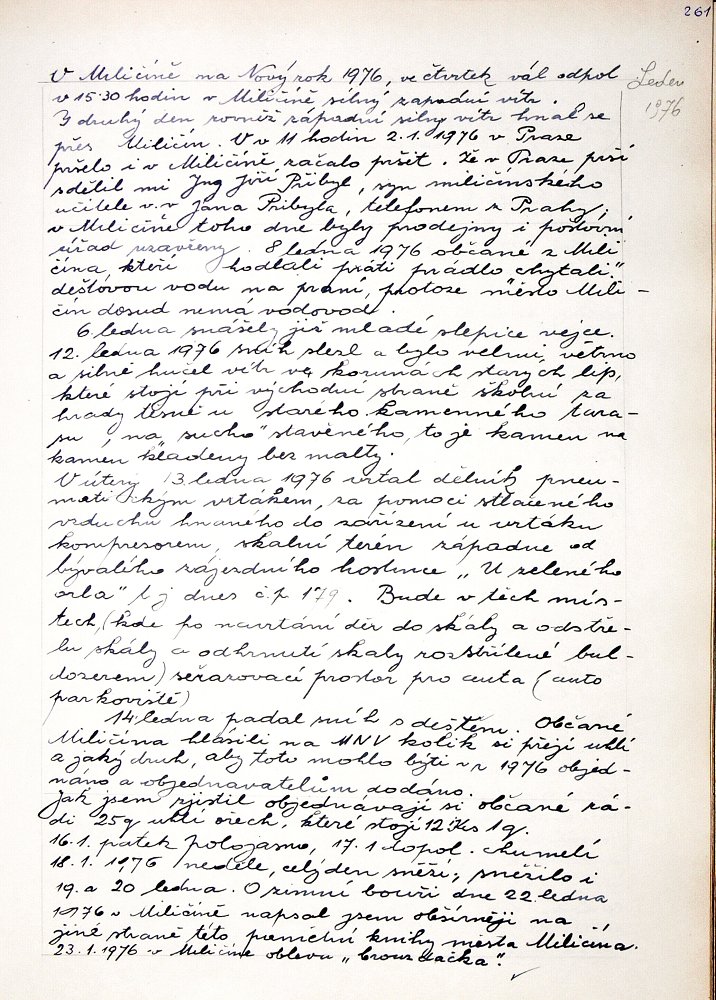 261
Leden
1976
V Miličíně na Nový rok 1976, ve čtvrtek vál odpol
v 15·30 hodin v Miličíně silný západní vítr.
I druhý den rovněž západní silný vítr hnal se
přes Miličín. V v 11 hodin 2.1.1976 v Praze
pršelo i v Miličíně začalo pršet. Že v Praze prší
sdělil mi Ing Jiří Přibyl, syn miličínského
učitele v.v Jana Přibyla, telefonem z Prahy;
v Miličíně toho dne byly prodejny i poštovní
úřad uzavřeny. 8 ledna 1976 občané z Mili
čína, kteří hodlali práti prádlo chytali"
dešťovou vodu na praní, protože město Mili-
čín dosud nemá vodovod.
6 ledna snášely již mladé slepice vejce.
12. ledna 1976 sníh slezl a bylo velmi větrno
a silně hučel vítr ve korunách starých lip,
které stojí při východní straně školní za
hrady těsně u starého kamenného tara-
su, na „sucho" stavěného, to je kamen na
kamen kladeny bez malty.
V úterý 13 ledna 1976 vrtal dělník pneu-
matickým vrtákem, za pomoci stlačeného
vzduchu hnaného do zařízení u vrtáku
kompresorem, skalní terén západně od
bývalého zájezdního hostince „U zeleného
orla" t j dnes č.p 179. Bude v těch mís-
tech, (kde po navrtání děr do skály a odstře-
lu skály a odhrnutí skaly rozstřílené bul-
dozerem) seřazovací prostor pro auta (auto
parkoviště)
14 ledna padal sníh s deštěm. Občané
Miličína hlásili na MNV kolik si přejí uhlí
a jaký druh, aby toto mohlo býti v r 1976 objed-
náno a objednavatelům dodáno.
Jak jsem zjistil objednávají si občané rá-
di 25q uhlí ořech, které stojí 12 Kčs 1q.
16.1. pátek polojasno, 17.1 dopol. chumelí
18.1. 1976 neděle, celý den sněží; sněžilo i
19. a 20 ledna. O zimní bouři dne 22 ledna
1976 v Miličíně napsal jsem obšírněji na
jiné straně této pamětní knihy města Miličína.
23.1.1976 v Miličíně obleva „brouzdačka".